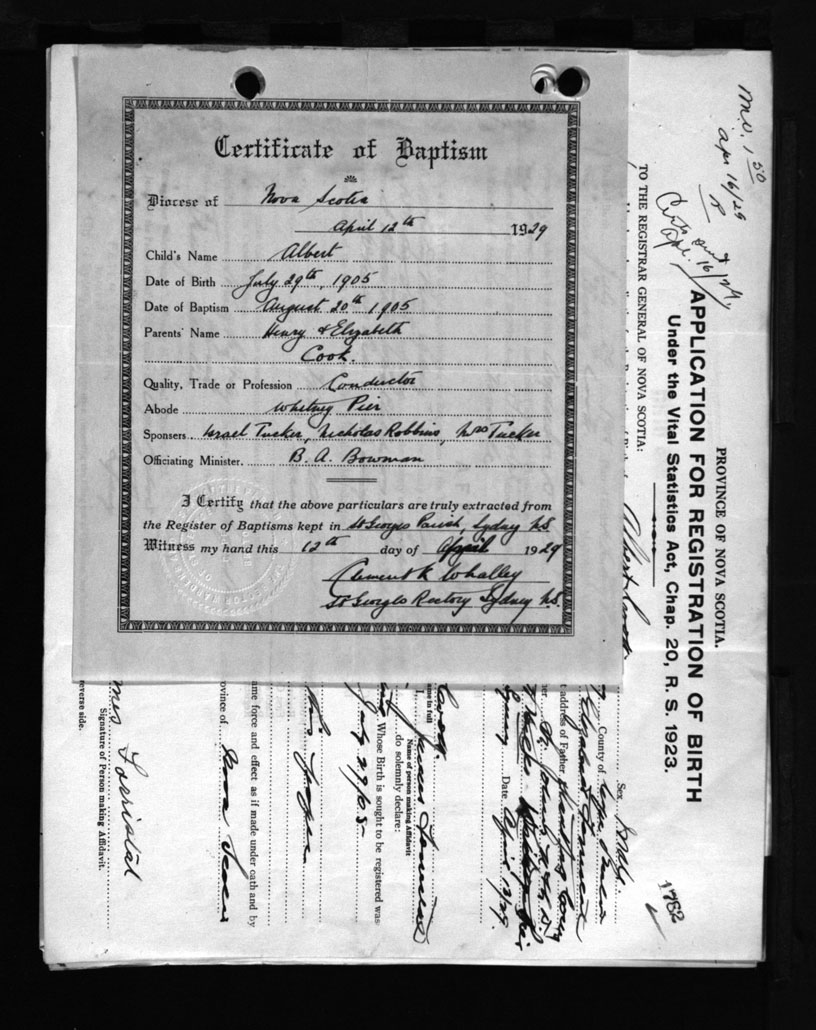 Certificate of Baptism
Diocese of Nova Scotia
April 12th 1929
Child's Name Albert
Date of Birth July 29th, 1905
Date of Baptism August 20th 1905
Parents' Name Henry & Elizabeth
Cook.
Quality, Trade or Profession Conductor
Abode Whitney Pier
Sponsers Israel Tucker, Nicholas Robbins, Mrs Tucker
Officiating Minister. B. A. Bowman
I Certify that the above particulars are truly extracted from
the Register of Baptisms kept in St Georges Parish, Sydney N.S.
Witness my hand this 12th day of April 1929
Clement R Whalley
St Georges Rectory Sydney N.S.
1.50
Apr 16/29
Apr. 16/29
PROVINCE OF NOVA SCOTIA.
APPLICATION FOR REGISTRATION OF BIRTH
Under the Vital Statistics Act, Chap. 20, R. S. 1923.
TO THE REGISTRAR GENERAL OF NOVA SCOTIA:
Albert Cook.
Sex
County of Cape Breton
Elizabeth
t address of Father
St. John's
Whitney Pier
Date April 12/29.
ame in full
I, James
Name of person making Affidavit
do solemnly declare:
Whose Birth is sought to be registered was
July 29/05
ame force and effect as if made under oath and by
ovince of Nova Scotia
Signature of Person making Affidavit.
everse side.
1782